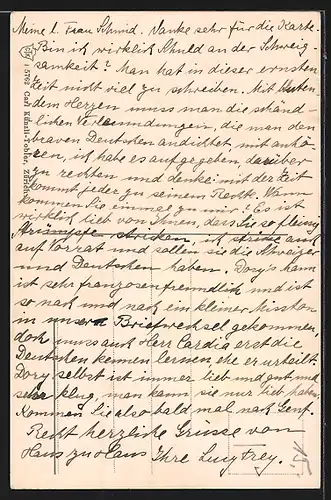 Meine l. Frau Schmid. Danke sehr für die Karte.
Bin ich wirklich Schuld an der Schweig-
samkeit? Man hat in dieser ernsten
Zeit nicht viel zu schreiben. Mit bluten-
dem Herzen muss man die schänd-
lichen Verleumdungen, die man den
braven Deutschen andichtet, mit anhö-
ren, ich habe es aufgegeben, darüber
zu rechten und denke: mit der Zeit
kommt jeder zu seinem Recht. Wann
kommen Sie einmal zu mir? Es ist
wirklich lieb von Ihnen, dass Sie so fleissig
Strümpfe stricken, ich stricke auch
auf Vorrat und sollen sie die Schweizer
und Deutschen haben. Dory's Mann
ist sehr franzosenfreundlich und ist
so nach und nach ein kleiner Misston
in unsern Briefwechsel gekommen,
doch muss auch Herr Cardia erst die
Deutschen kennen lernen, ehe er urteilt.
Dory selbst ist immer lieb und gut und
sehr klug, man kann sie nur lieb haben.
Kommen Sie also bald mal nach Genf.
Recht herzliche Grüsse von
Haus zu Haus Ihre Lucy Frey.
Carl Künzli-Tobler, Zürich